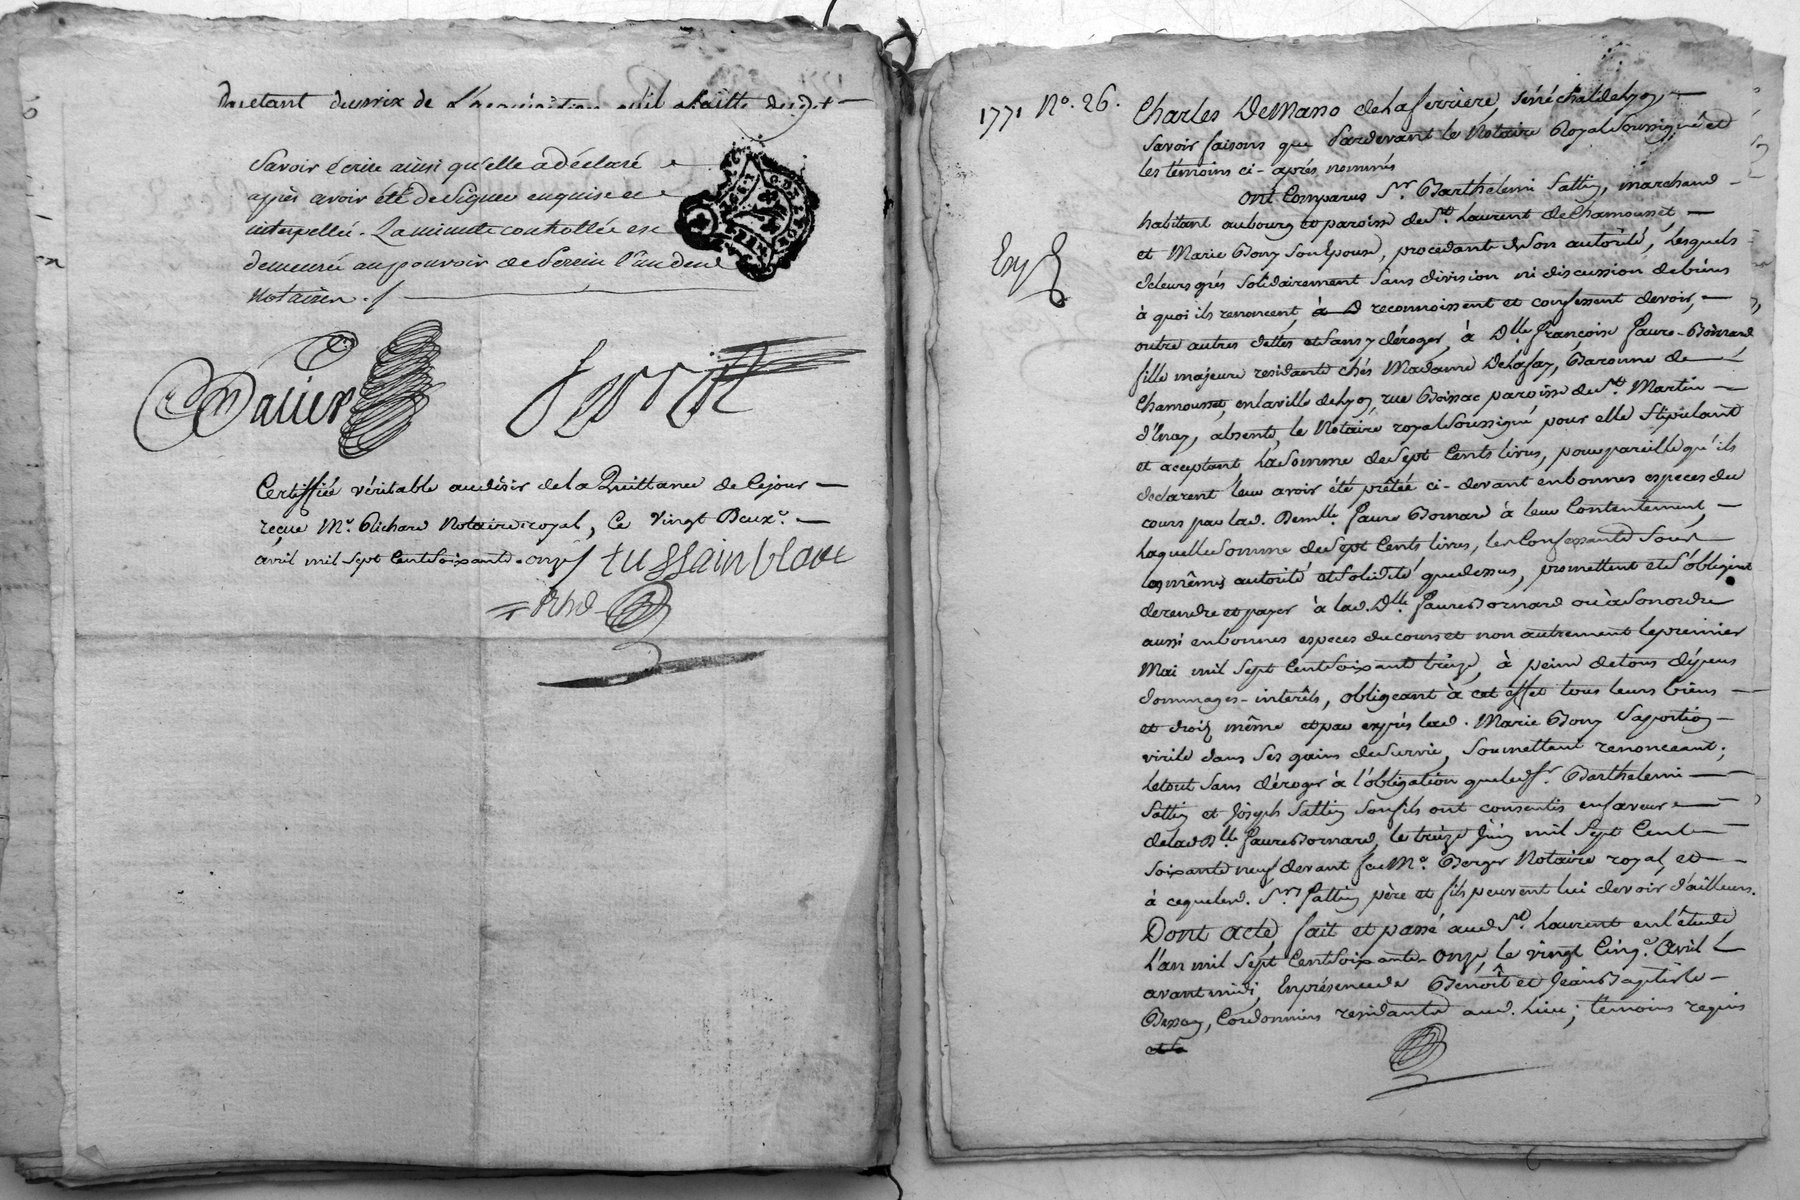 Savoir Ecrire ainsi qu'elle a déclaré
après avoir été de Signer enquise et
interpellée. La minute controllée est
demeurée au pouvoir de Serrin l'un des
Notaires ./.
Dalier
Certiffiée véritable au désir de la Quittance de Cejour
reçue Me. Richard Notaire royal, Ce vingt Deuxe.
avril mil Sept Cent Soixante-onze/. tussain blanc
Rhd
1771 No. 26.
Charles DeMaso de La ferrière, sénéchal de Lyon,
Savoir faisons que Pardevant le Notaire Royal Soussigné et
les témoins ci-après nommés
Ont Comparus Sr. Barthelemi Sattin, marchand
habitant au bourg et paroisse de St. Laurent de Chamousset,
et Marie Bony Son Epouse, procédant de Son autorité, Lesquels
de leurs grés solidairement sans division ni discussion de biens
à quoi ils renoncent, reconnoissent et confessent devoir,
outre autres dettes et sans y déroger, à Dlle. françoise faure-Bornard
fille majeure residante chés Madame DeLafay, Baronne de
Chamousset, en la ville de Lyon, rue Boissac paroisse de St. Martin
d'Enay, absente, le Notaire royal Soussigné pour elle Stipulant
et acceptant, La Somme de Sept Cents livres, pour pareille qu'ils
declarent leur avoir été prêtée ci-devant en bonnes especes du
cours par lad. Demlle. faure Bornard à leur Contentement,
laquelle Somme de Sept Cents livres, les Confessants Sous
les mêmes autorité et Solidité que dessus, promettent et S'obligent
de rendre et payer à lad. Dlle. faure Bornard ou à Son ordre
aussi en bonnes especes du cours et non autrement le premier
Mai mil Sept Cent Soixante treize, à peine de tous dépens
dommages-intérêts, obligeant à cet effet tous leurs biens
et droits même et par exprès lad. Marie Bony Sa portion
virile dans Ses gains de Survie, Soumettant renonceant;
le tout Sans déroger à l'obligation que led. Sr. Barthelemi
Sattin et Joseph Sattin Son fils ont consentis en faveur
de lad. Dlle. faure Bornard, le treize Juin mil Sept Cent
Soixante neuf devant feu Me. Berger Notaire royal, et
à ce que lesd. Srs. Sattin père et fils peuvent lui devoir d'ailleurs.
Dont acte, fait et passé aud. St. Laurent en l'étude
L'an mil Sept Cent Soixante-onze, le vingt Cinqe. avril
avant midi, En présence de Benoît et Jean Baptiste
Cordonniers residants aud. Lieu, témoins requis